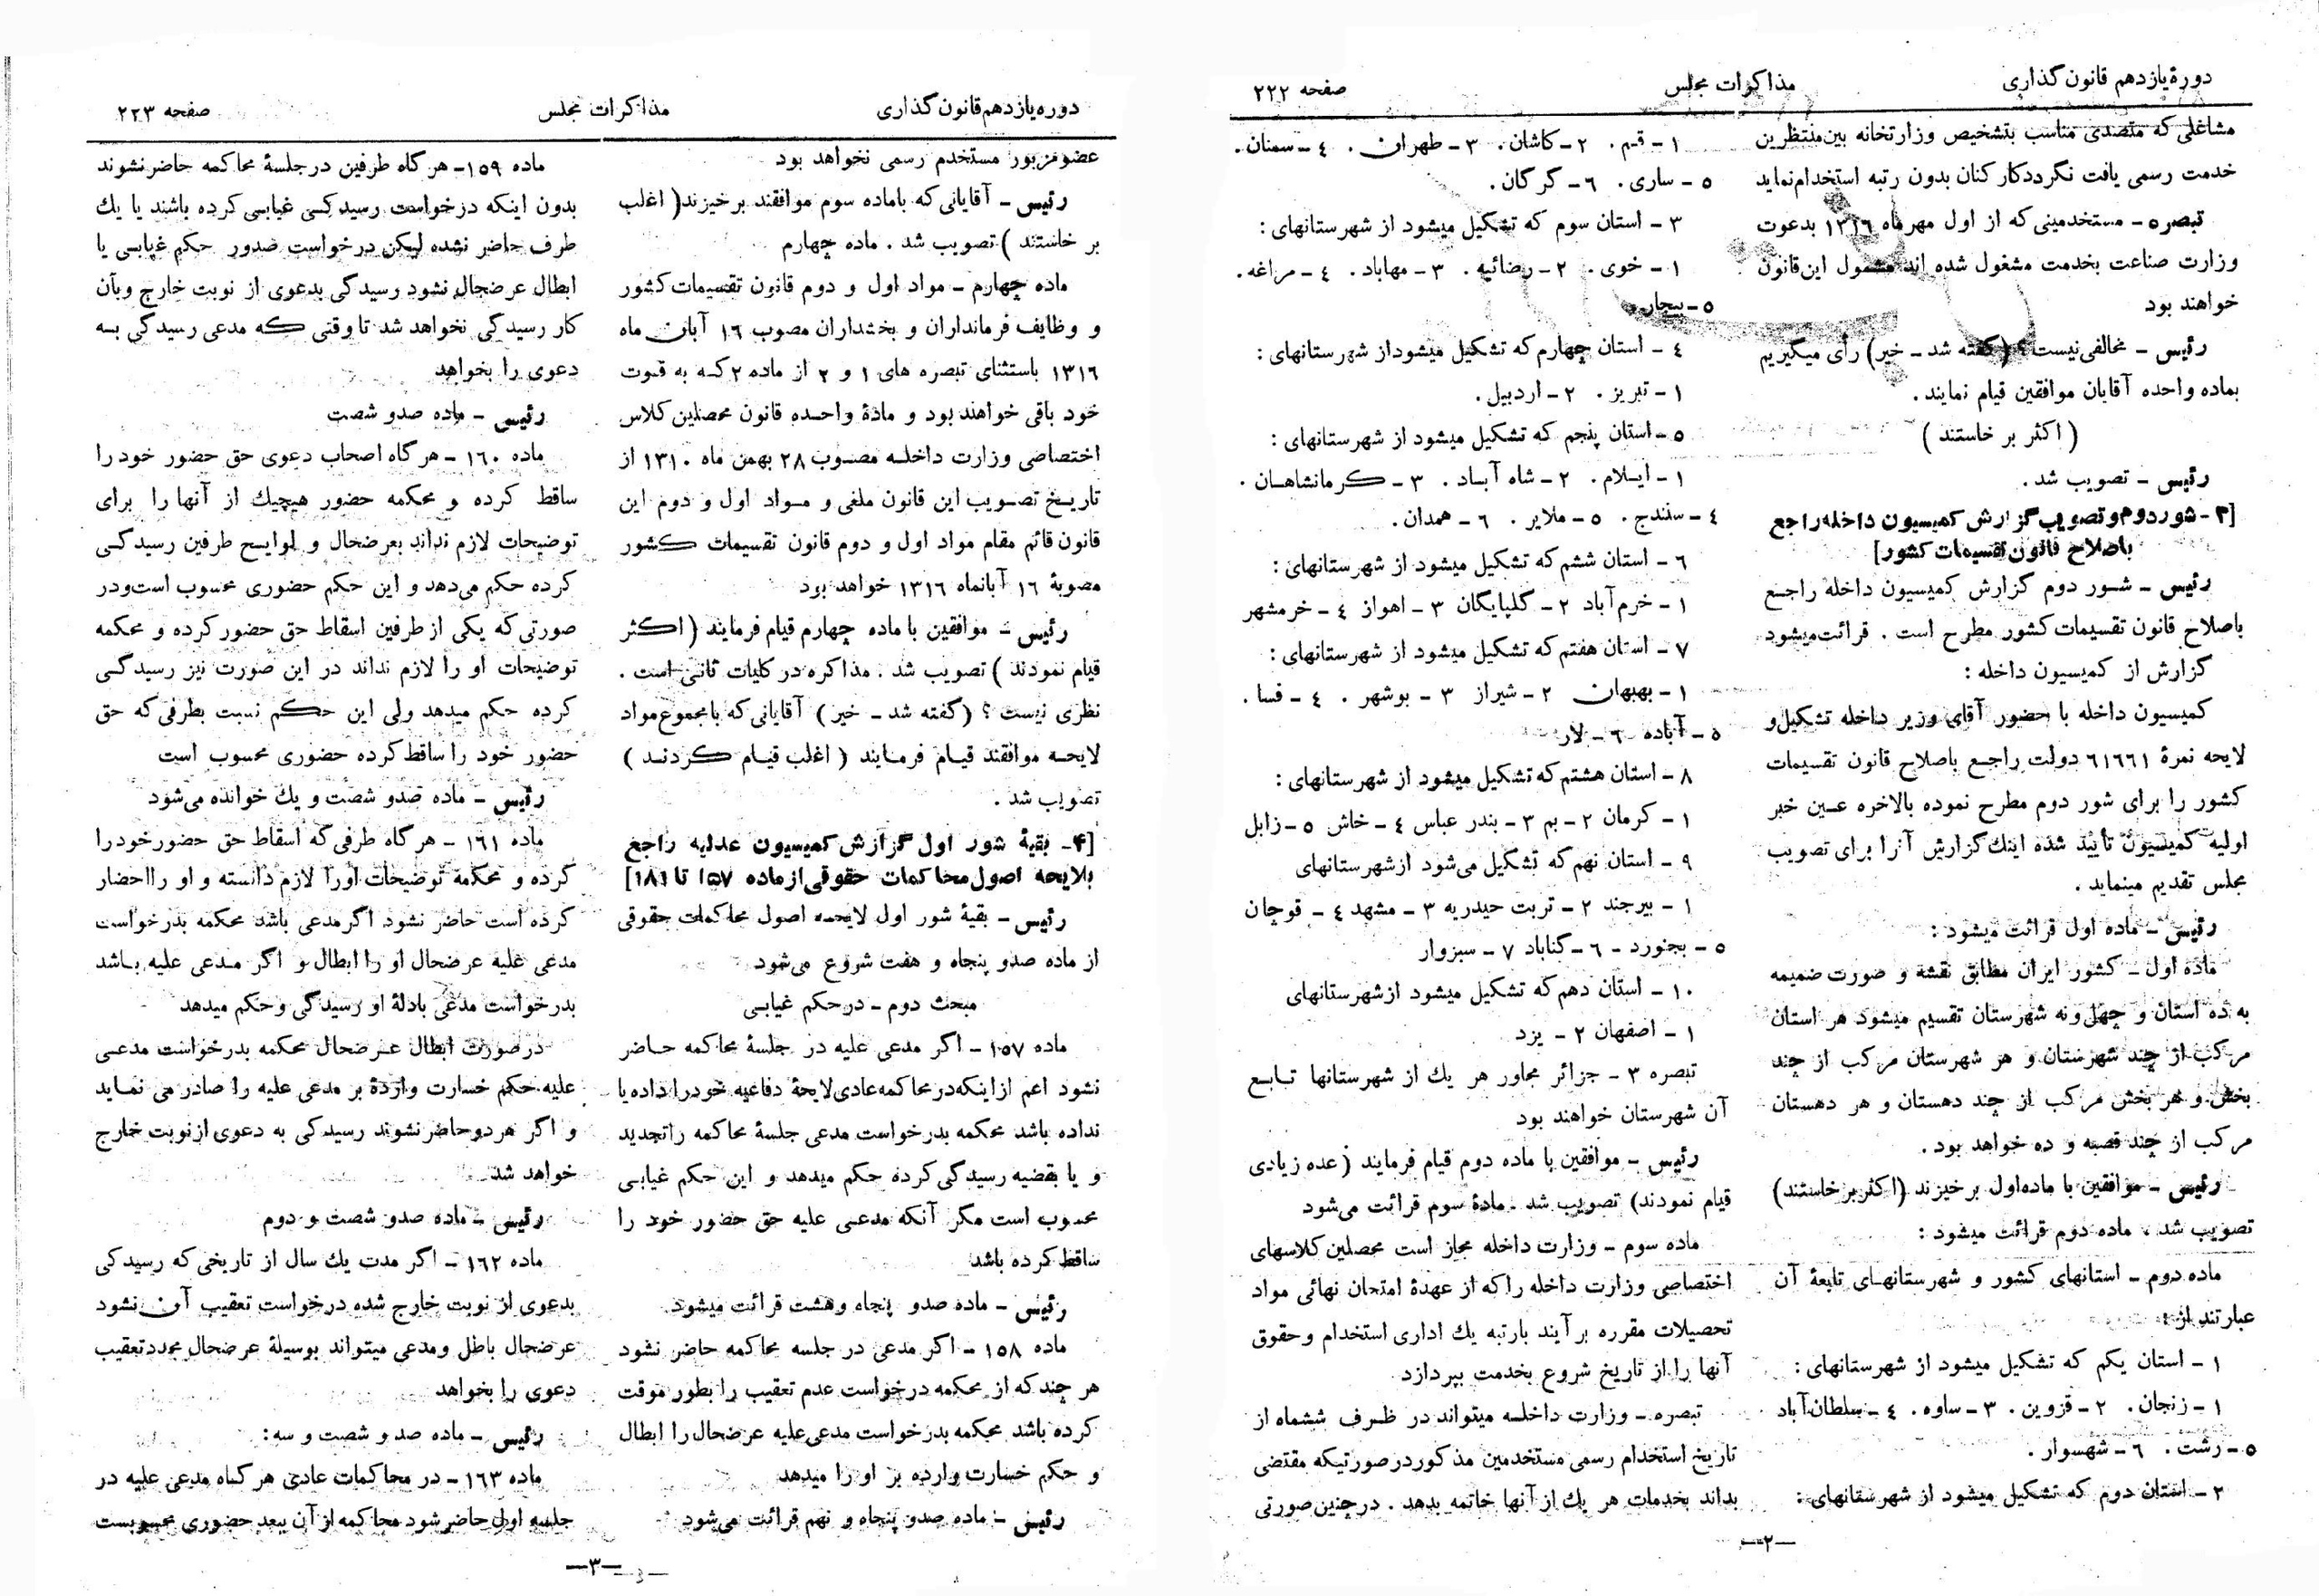 دورهٔ یازدهم قانون گذاری
مذاکرات مجلس
صفحه ۲۲۲
مشاغلی که متصدی مناسب بتشخیص وزارتخانه بین منتظرین
خدمت رسمی یافت نگردد کارکنان بدون رتبه استخدام نماید
تبصره ۵ - مستخدمینی که از اول مهرماه ۱۳۱۶ بدعوت
وزارت صناعت بخدمت مشغول شده اند مشمول این قانون
خواهند بود
رئیس - مخالفی نیست؟ (گفته شد - خیر) رأی میگیریم
بماده واحده آقایان موافقین قیام نمایند.
(اکثر بر خاستند)
رئیس - تصویب شد.
[۳ - شور دوم و تصویب گزارش کمیسیون داخله راجع
باصلاح قانون تقسیمات کشور]
رئیس - شور دوم گزارش کمیسیون داخله راجع
باصلاح قانون تقسیمات کشور مطرح است. قرائت میشود
گزارش از کمیسیون داخله:
کمیسیون داخله با حضور آقای وزیر داخله تشکیل و
لایحه نمرهٔ ۶۱۶۶۱ دولت راجع باصلاح قانون تقسیمات
کشور را برای شور دوم مطرح نموده بالاخره عین خبر
اولیه کمیسیون تأیید شده اینك گزارش آنرا برای تصویب
مجلس تقدیم مینماید.
رئیس - ماده اول قرائت میشود:
ماده اول - کشور ایران مطابق نقشه و صورت ضمیمه
به ده استان و چهل و نه شهرستان تقسیم میشود هر استان
مرکب از چند شهرستان و هر شهرستان مرکب از چند
بخش و هر بخش مرکب از چند دهستان و هر دهستان
مرکب از چند قصبه و ده خواهد بود.
رئیس - موافقین با ماده اول برخیزند (اکثر برخاستند)
تصویب شد، ماده دوم قرائت میشود:
ماده دوم - استانهای کشور و شهرستانهای تابعهٔ آن
عبارتند از:
۱ - استان یکم که تشکیل میشود از شهرستانهای:
۱ - زنجان. ۲ - قزوین. ۳ - ساوه. ۴ - سلطان آباد
۵ - رشت. ۶ - شهسوار.
۲ - استان دوم که تشکیل میشود از شهرستانهای:
۱ - قم. ۲ - کاشان. ۳ - طهران. ۴ - سمنان.
۵ - ساری. ۶ - گرگان.
۳ - استان سوم که تشکیل میشود از شهرستانهای:
۱ - خوی. ۲ - رضائیه. ۳ - مهاباد. ۴ - مراغه.
۵ - بیجار.
۴ - استان چهارم که تشکیل میشود از شهرستانهای:
۱ - تبریز. ۲ - اردبیل.
۵ - استان پنجم که تشکیل میشود از شهرستانهای:
۱ - ایلام. ۲ - شاه آباد. ۳ - کرمانشاهان.
۴ - سنندج. ۵ - ملایر. ۶ - همدان.
۶ - استان ششم که تشکیل میشود از شهرستانهای:
۱ - خرم آباد ۲ - گلپایگان ۳ - اهواز ۴ - خرمشهر
۷ - استان هفتم که تشکیل میشود از شهرستانهای:
۱ - بهبهان ۲ - شیراز ۳ - بوشهر. ۴ - فسا.
۵ - آباده ۶ - لار
۸ - استان هشتم که تشکیل میشود از شهرستانهای:
۱ - کرمان ۲ - بم ۳ - بندر عباس ۴ - خاش ۵ - زابل
۹ - استان نهم که تشکیل می‌شود از شهرستانهای
۱ - بیرجند ۲ - تربت حیدریه ۳ - مشهد ۴ - قوچان
۵ - بجنورد - ۶ - گناباد ۷ - سبزوار
۱۰ - استان دهم که تشکیل میشود از شهرستانهای
۱ - اصفهان ۲ - یزد
تبصره ۳ - جزائر مجاور هر یك از شهرستانها تابع
آن شهرستان خواهند بود
رئیس - موافقین با ماده دوم قیام فرمایند (عده زیادی
قیام نمودند) تصویب شد. مادهٔ سوم قرائت می‌شود
ماده سوم - وزارت داخله مجاز است محصلین کلاسهای
اختصاصی وزارت داخله را که از عهدهٔ امتحان نهائی مواد
تحصیلات مقرره برآیند بارتبه یك اداری استخدام و حقوق
آنها را از تاریخ شروع بخدمت بپردازد
تبصره - وزارت داخله میتواند در ظرف ششماه از
تاریخ استخدام رسمی مستخدمین مذکور در صورتیکه مقتضی
بداند بخدمات هر یك از آنها خاتمه بدهد. در چنین صورتی
-۲-
دوره یازدهم قانون گذاری
مذاکرات مجلس
صفحه ۲۲۳
عضو مزبور مستخدم رسمی نخواهد بود
رئیس - آقایانی که باماده سوم موافقند برخیزند (اغلب
بر خاستند) تصویب شد. ماده چهارم
ماده چهارم - مواد اول و دوم قانون تقسیمات کشور
و وظایف فرمانداران و بخشداران مصوب ۱۶ آبان ماه
۱۳۱۶ باستثنای تبصره های ۱ و ۲ از ماده ۲ که به قوت
خود باقی خواهند بود و مادهٔ واحده قانون محصلین کلاس
اختصاصی وزارت داخله مصوب ۲۸ بهمن ماه ۱۳۱۰ از
تاریخ تصویب این قانون ملغی و مواد اول و دوم این
قانون قائم مقام مواد اول و دوم قانون تقسیمات کشور
مصوبهٔ ۱۶ آبانماه ۱۳۱۶ خواهد بود
رئیس - موافقین با ماده چهارم قیام فرمایند (اکثر
قیام نمودند) تصویب شد. مذاکره در کلیات ثانی است.
نظری نیست؟ (گفته شد - خیر) آقایانی که با مجموع مواد
لایحه موافقند قیام فرمایند (اغلب قیام کردند)
تصویب شد.
[۴ - بقیهٔ شور اول گزارش کمیسیون عدلیه راجع
بلایحه اصول محاکمات حقوقی از ماده ۱۵۷ تا ۱۸۱]
رئیس - بقیهٔ شور اول لایحه اصول محاکمات حقوقی
از ماده صد و پنجاه و هفت شروع می‌شود
مبحث دوم - در حکم غیابی
ماده ۱۵۷ - اگر مدعی علیه در جلسهٔ محاکمه حاضر
نشود اعم از اینکه در محاکمه عادی لایحهٔ دفاعیه خود را داده یا
نداده باشد محکمه بدرخواست مدعی جلسهٔ محاکمه را تجدید
و یا بقضیه رسیدگی کرده حکم میدهد و این حکم غیابی
محسوب است مگر آنکه مدعی علیه حق حضور خود را
ساقط کرده باشد
رئیس - ماده صدو پنجاه وهشت قرائت میشود
ماده ۱۵۸ - اگر مدعی در جلسه محاکمه حاضر نشود
هر چند که از محکمه درخواست عدم تعقیب را بطور موقت
کرده باشد محکمه بدرخواست مدعی علیه عرضحال را ابطال
و حکم خسارت وارده بر او را میدهد
رئیس - ماده صدو پنجاه و نهم قرائت می‌شود
ماده ۱۵۹ - هر گاه طرفین در جلسهٔ محاکمه حاضر نشوند
بدون اینکه درخواست رسیدگی غیابی کرده باشند یا یك
طرف حاضر نشده لیکن درخواست صدور حکم غیابی یا
ابطال عرضحال نشود رسیدگی بدعوی از نوبت خارج وبآن
کار رسیدگی نخواهد شد تا وقتی که مدعی رسیدگی به
دعوی را بخواهد
رئیس - ماده صدو شصت
ماده ۱۶۰ - هر گاه اصحاب دعوی حق حضور خود را
ساقط کرده و محکمه حضور هیچیك از آنها را برای
توضیحات لازم نداند بعرضحال و لوایح طرفین رسیدگی
کرده حکم می‌دهد و این حکم حضوری محسوب است و در
صورتی که یکی از طرفین اسقاط حق حضور کرده و محکمه
توضیحات او را لازم نداند در این صورت نیز رسیدگی
کرده حکم میدهد ولی این حکم نسبت بطرفی که حق
حضور خود را ساقط کرده حضوری محسوب است
رئیس - ماده صدو شصت و یك خوانده می‌شود
ماده ۱۶۱ - هر گاه طرفی که اسقاط حق حضور خود را
کرده و محکمه توضیحات اورا لازم دانسته و او را احضار
کرده است حاضر نشود اگر مدعی باشد محکمه بدرخواست
مدعی علیه عرضحال او را ابطال و اگر مدعی علیه باشد
بدرخواست مدعی بادلهٔ او رسیدگی و حکم میدهد
در صورت ابطال عرضحال محکمه بدرخواست مدعی
علیه حکم خسارت واردهٔ بر مدعی علیه را صادر می نماید
و اگر هر دو حاضر نشوند رسیدگی به دعوی از نوبت خارج
خواهد شد
رئیس - ماده صدو شصت و دوم
ماده ۱۶۲ - اگر مدت یك سال از تاریخی که رسیدگی
بدعوی از نوبت خارج شده درخواست تعقیب آن نشود
عرضحال باطل و مدعی میتواند بوسیلهٔ عرضحال مجدد تعقیب
دعوی را بخواهد
رئیس - ماده صد و شصت و سه:
ماده ۱۶۳ - در محاکمات عادی هر گاه مدعی علیه در
جلسه اول حاضر شود محاکمه از آن ببعد حضوری محسوبست
-۳-